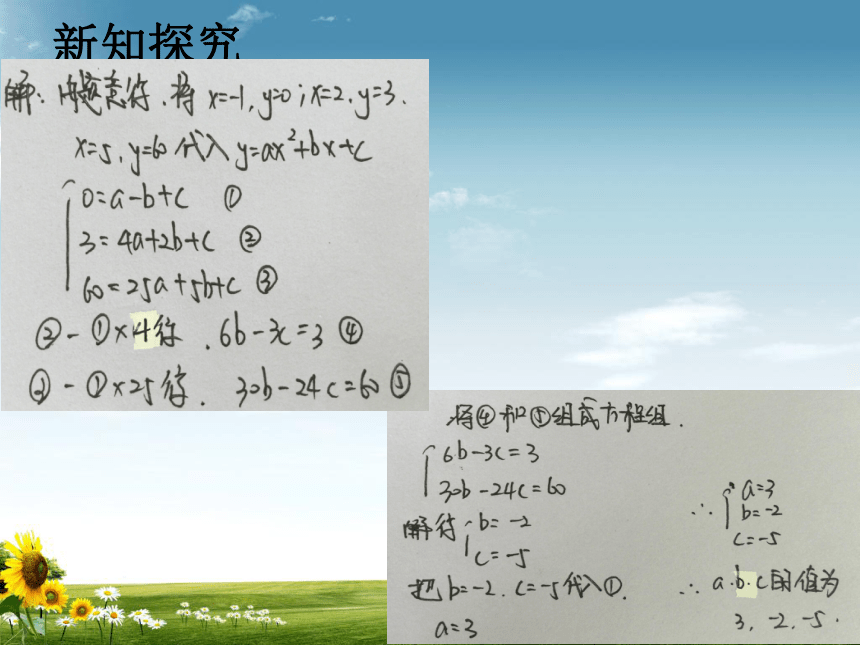 新知探究
解：由题意得，将 x=-1，y=0；x=2，y=3．
x=5，y=60 代入 y=ax²+bx+c
0=a-b+c ①
3=4a+2b+c ②
60=25a+5b+c ③
②-①×4得．6b-3c=3 ④
③-①×25得．30b-24c=60 ⑤
将④和⑤组成方程组．
6b-3c=3
30b-24c=60
解得 b=-2
c=-5
把 b=-2．c=-5代入①．
a=3
∴ a=3
b=-2
c=-5
∴ a．b．c的值为
3，-2，-5．